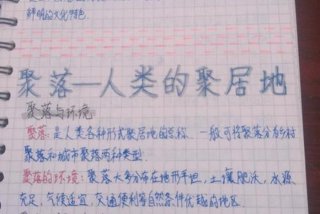 鲜明的文化特色
聚落—人类的聚居地
聚落与环境
聚落：是人类各种形式聚居地的总称，一般可将聚落分为乡村
聚落和城市聚落两种类型
聚落的环境：聚落大多分布在地形平坦，土壤肥沃，水源
充足，气候适宜，交通便利等自然条件优越的地区